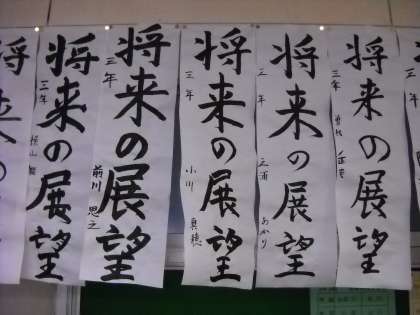 将来の展望
三年
将来の展望
三年
三浦 あかり
将来の展望
三年
小川 真穂
将来の展望
三年
前川 思之
将来の展望
三年
将来の